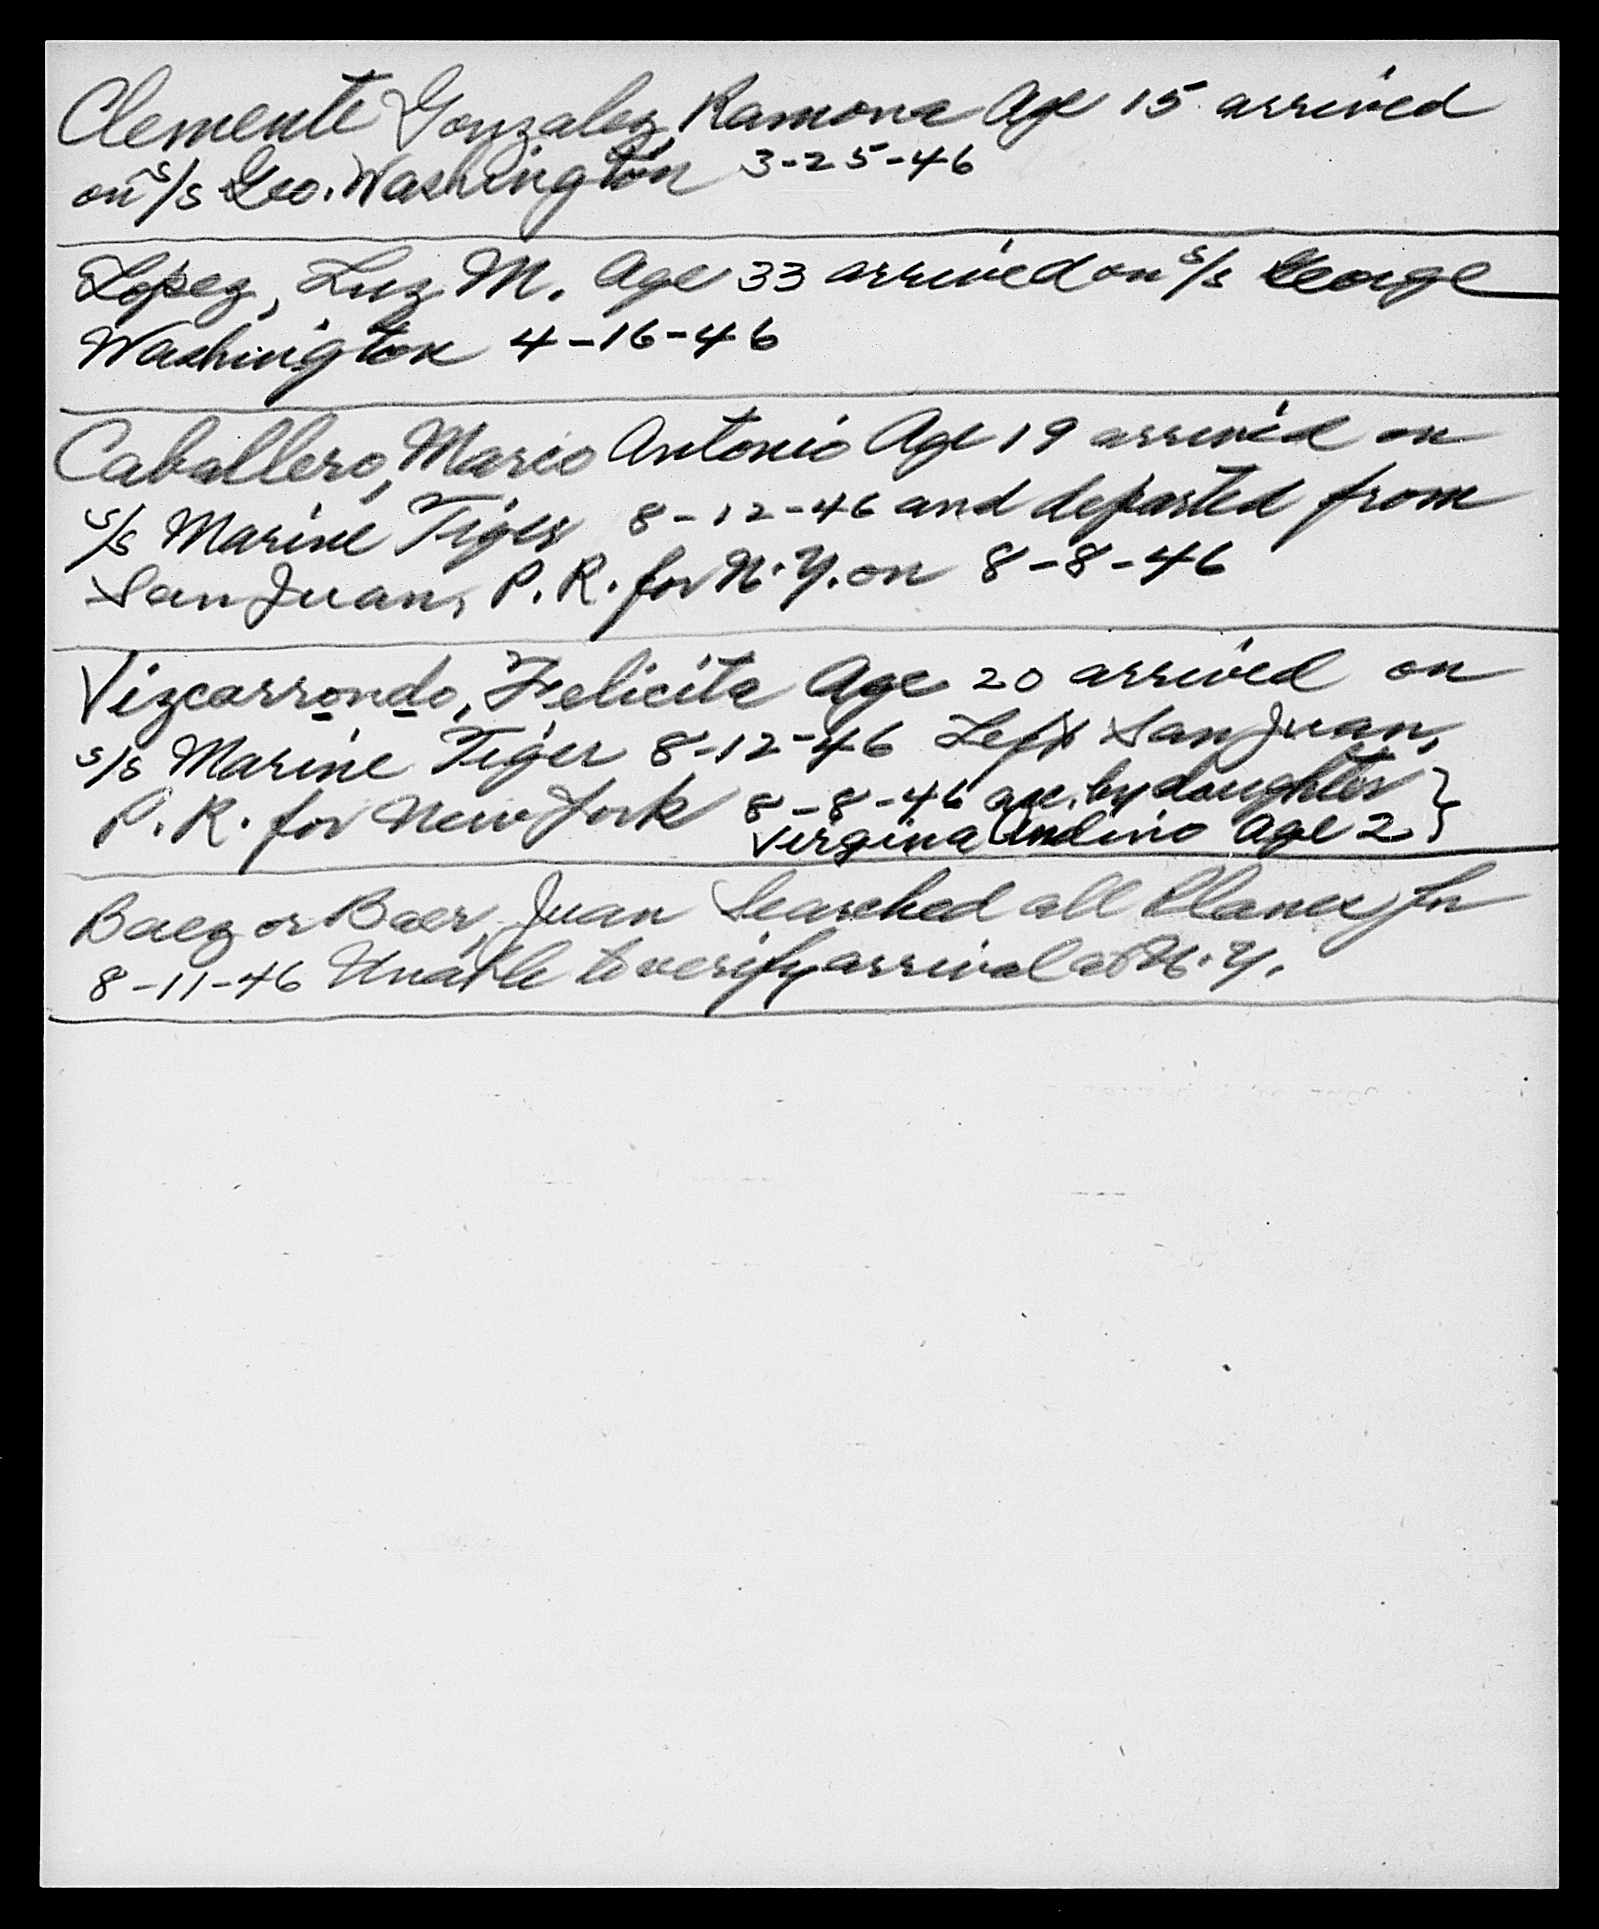 Clemente Gonzalez, Ramona Age 15 arrived
on s/s Geo. Washington 3-25-46
Lopez, Luz M. Age 33 arrived on s/s George
Washington 4-16-46
Caballero, Mario Antonio Age 19 arrived on
s/s Marine Tiger 8-12-46 and departed from
San Juan, P.R. for N.Y. on 8-8-46
Vizcarrondo, Felicita Age 20 arrived on
s/s Marine Tiger 8-12-46 Left San Juan,
P.R. for New York 8-8-46 acc. by daughter
Virgina Andino Age 2
Baez or Baer, Juan Searched all Planes for
8-11-46 Unable to verify arrival at N.Y.